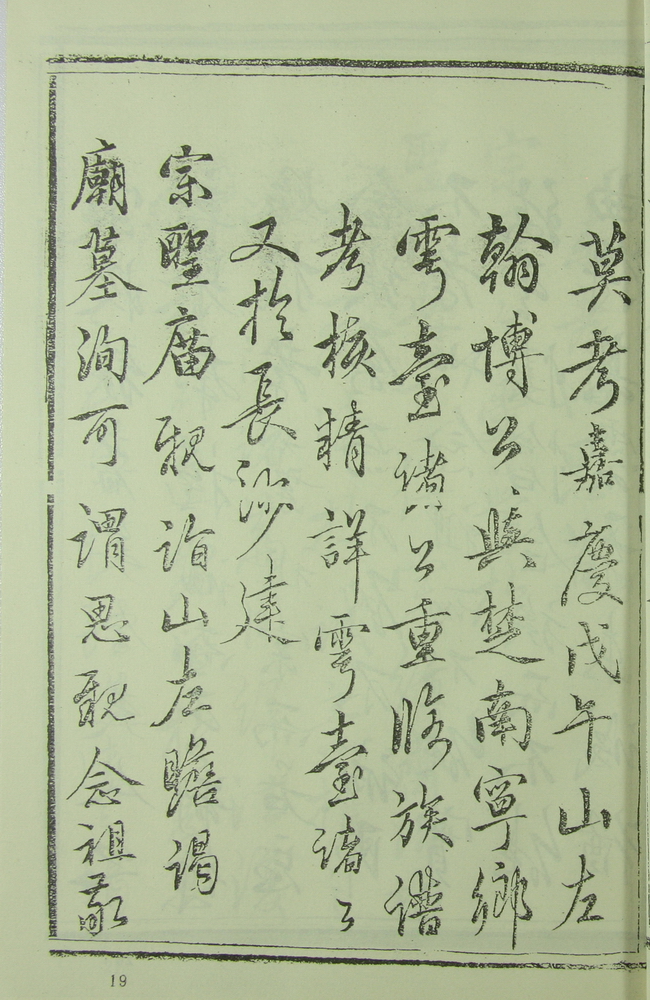 莫考嘉慶戊午山左
翰博公與楚南寧鄉
雩臺諸公重脩族譜
考核精詳雩臺諸公
又於長沙建
宗聖庿親詣山左瞻謁
廟墓洵可謂思親念祖敬
19